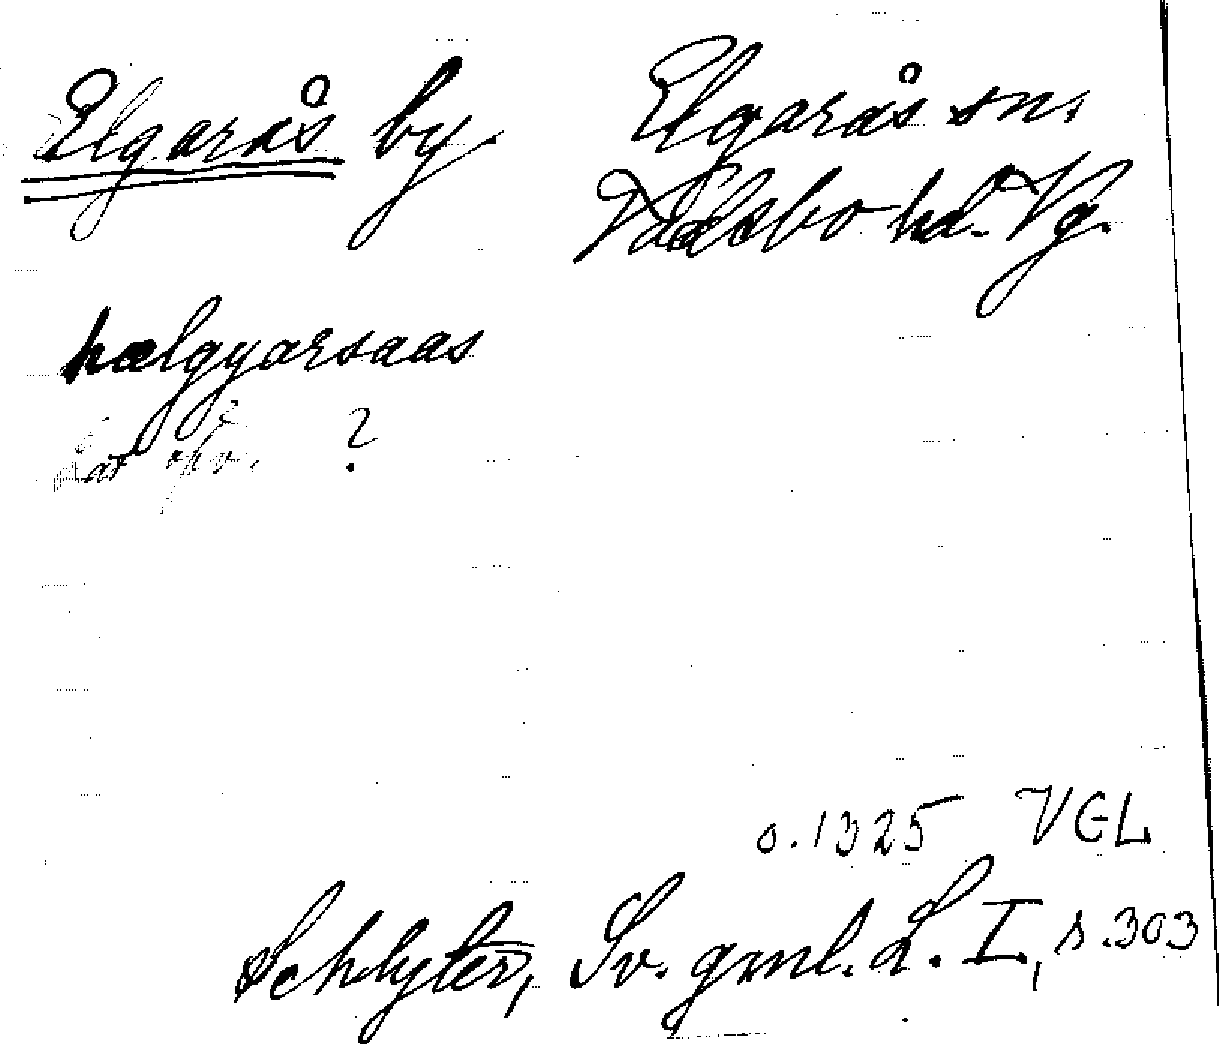 Elgarås by. Elgarås sn.
Vadsbo hd. Vg.
hælgyarsaas
?
o. 1325 VGL
Schlyter, Sv. gml. L. I, s. 303